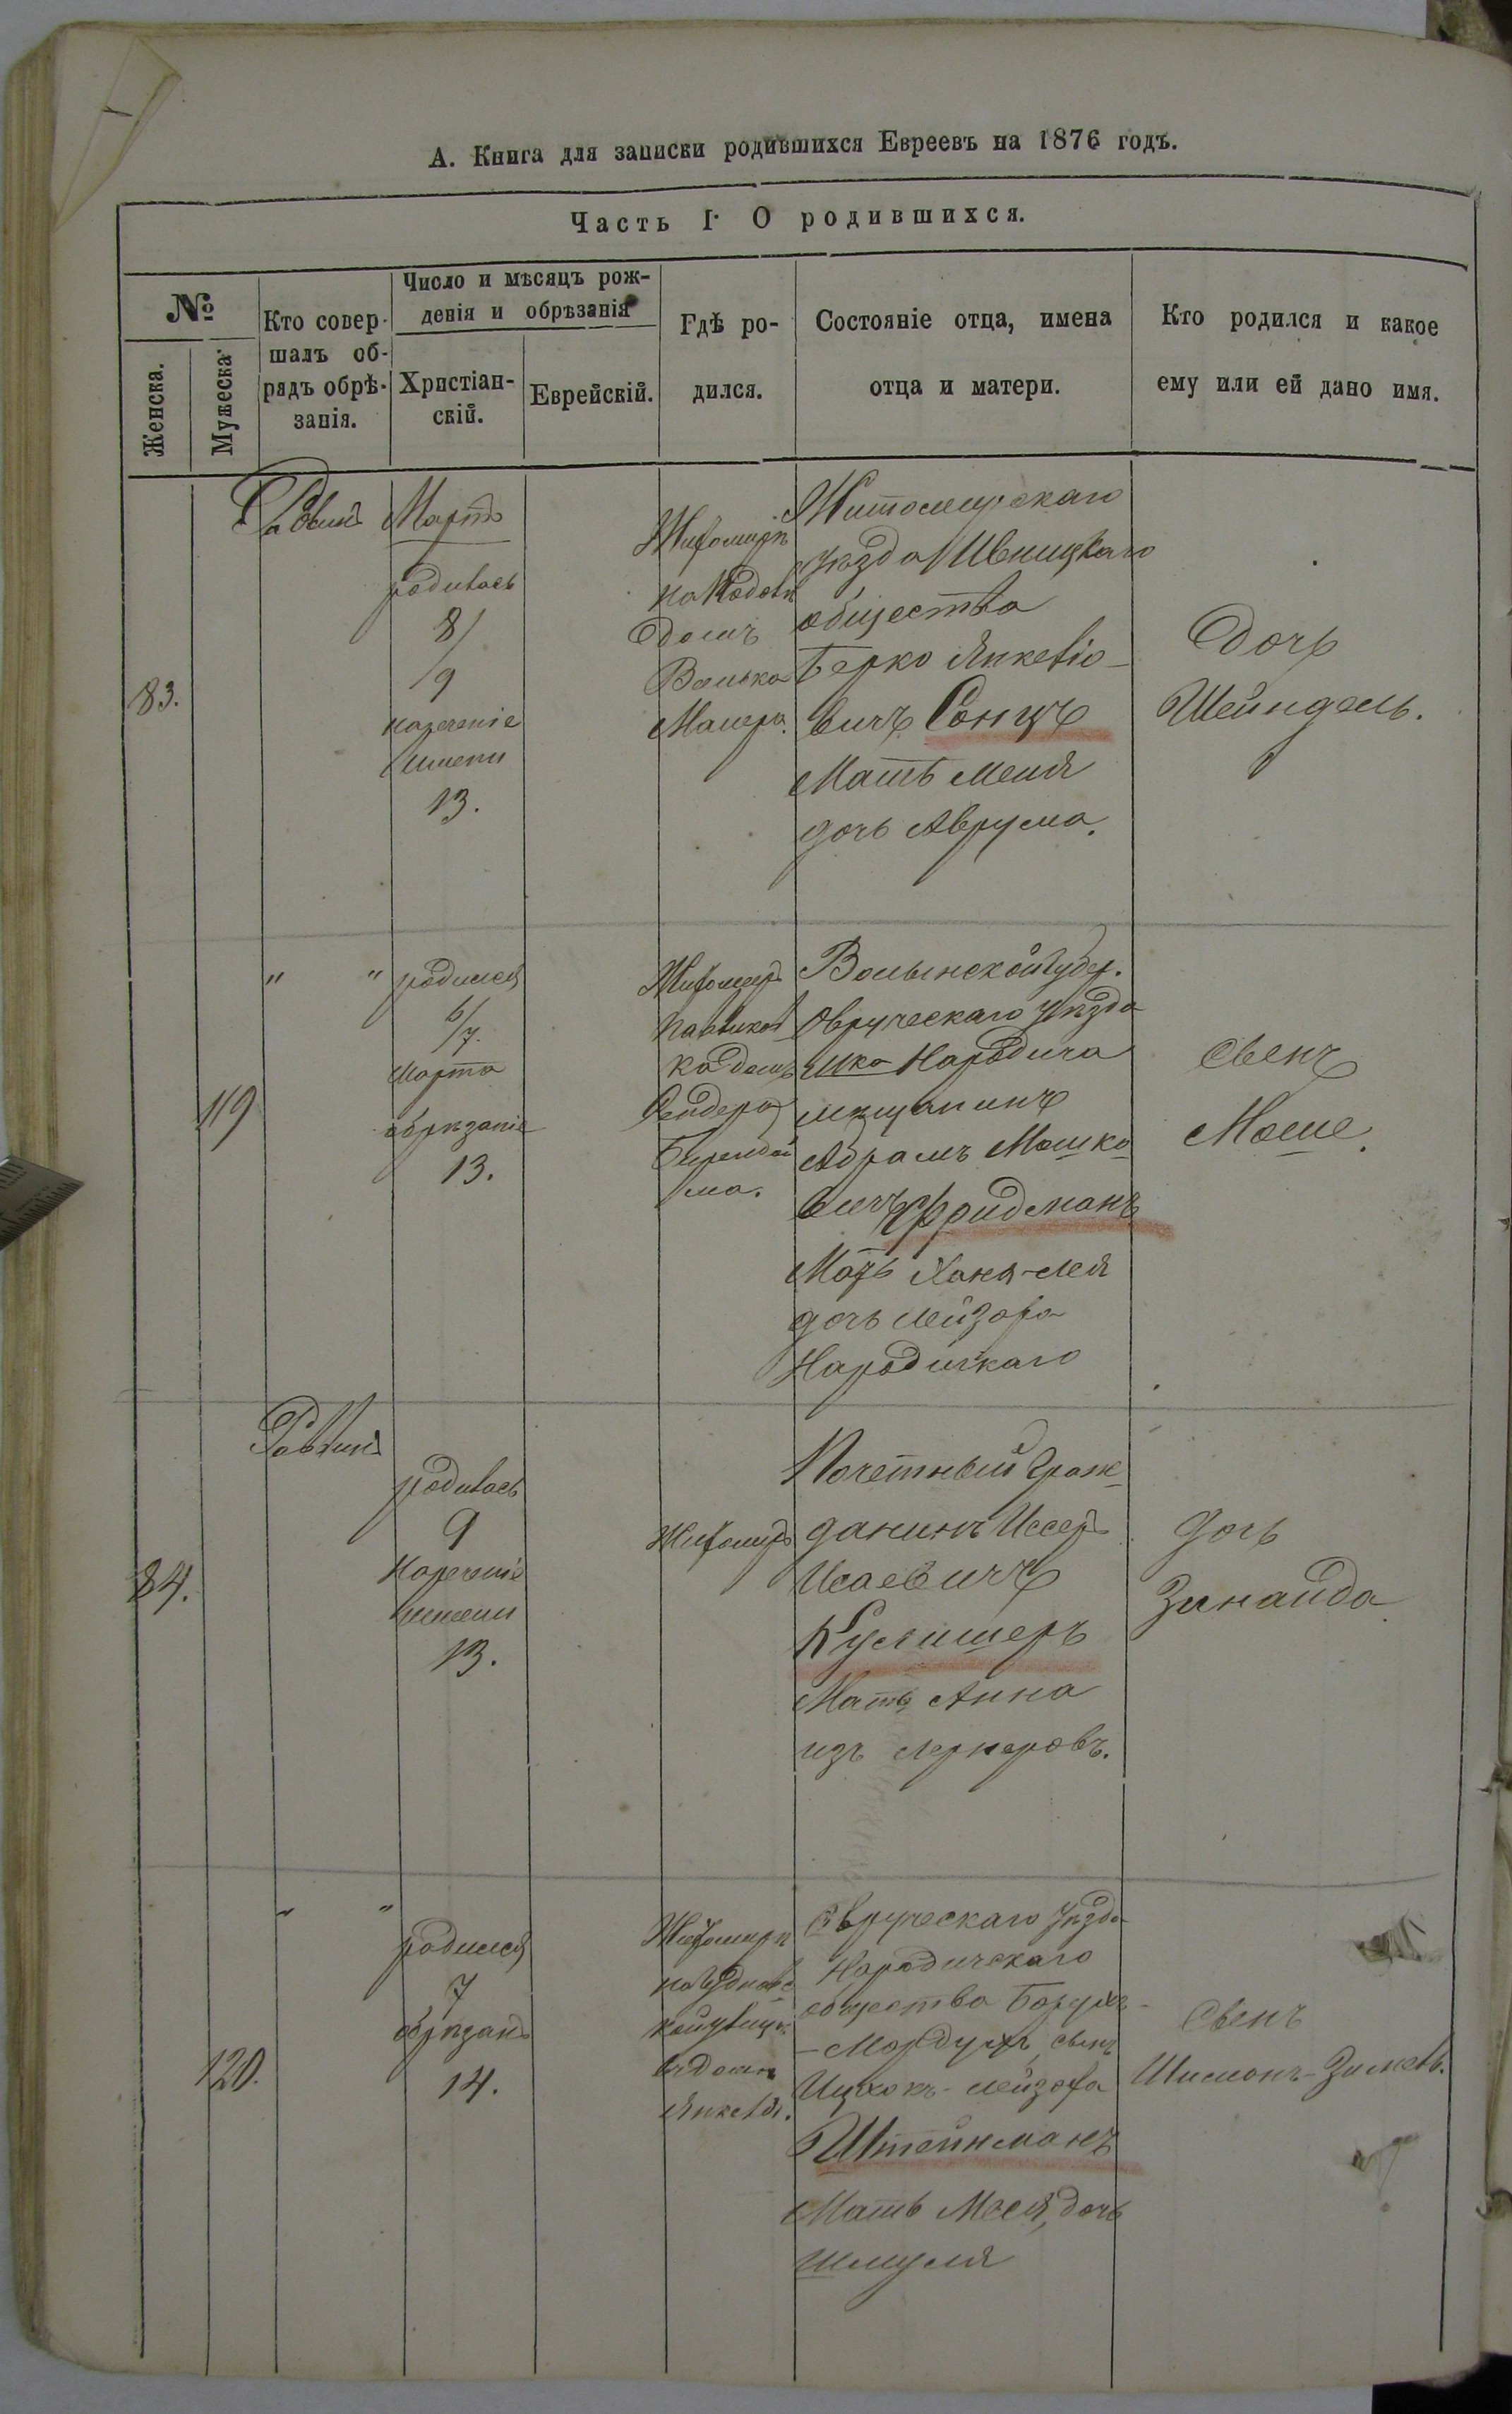 А. Книга для записки родившихся Евреевъ на 1876 годъ.
Часть I. О родившихся.
№
Женска.
Мужеска
Кто совер-
шалъ об-
рядъ обрѣ-
занія.
Число и мѣсяцъ рож-
денія и обрѣзанія
Христіан-
скій.
Еврейскій.
Гдѣ ро-
дился.
Состояніе отца, имена
отца и матери.
Кто родился и какое
ему или ей дано имя.
83.
Раввинъ
Мартъ
родилась
8/
9
нареченіе
имени
13.
Житомиръ
домъ
Волька
Маиера.
Житомирскаго
уѣзда Ивницкаго
общества
Берко Янкеліо-
вичъ Сонцъ
Мать Меня
дочь Аврума.
Дочь
Шейндель.
119
" "
родился
6/7.
Марта
обрѣзаніе
13.
Житомиръ
домъ
Сендера
Волынской Губер.
Овручскаго уѣзда
м-ка Народича
мѣщанинъ
Абрамъ Мошко
вичъ Фридманъ
Мать Ханя-Лея
дочь Лейзора
Народичкаго
Сынъ
Моше.
84.
Раввинъ
родилась
9
Нареченіе
имени
13.
Житомиръ
Почетный Граж
данинъ Иссеръ
Исаевичъ
Кулишеръ
Мать Анна
изъ Лернеровъ.
дочь
Зинаида
120.
" "
родился
7
обрѣзанъ
14.
Житомиръ
въ домѣ
Овруческаго Уѣзда
Народичскаго
общества Борухъ-
-Мордухъ, сынъ
Ицхокъ-Лейзора
Штейнманъ
Мать Мося, дочь
Шмуля
Сынъ
Шимонъ-Зимель.